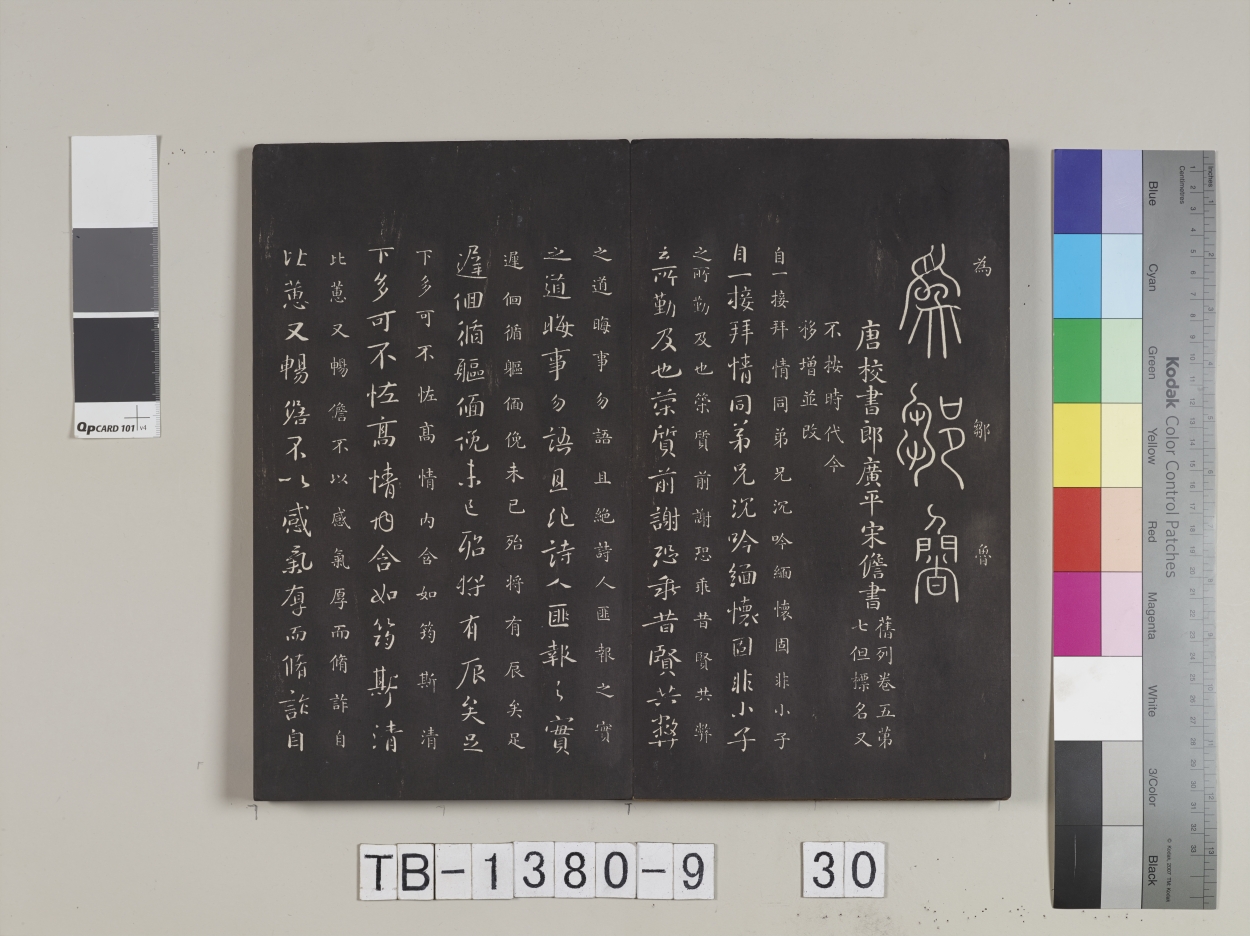 為 鄒 魯
為鄒魯
唐校書郎廣平宋儋書
舊列卷五第
七但標名又
不按時代今
移增並改
自一接拜情同弟兄沉吟緬懷固非小子
自一接拜情同弟兄沉吟緬懷固非小子
之所勤及也榮質前謝恐乖昔賢共弊
之所勤及也榮質前謝恐乖昔賢共弊
之道晦事勿語且絶詩人匪報之實
之道晦事勿語且絶詩人匪報之實
遲佪循軀偭俛未已殆将有辰矣足
遲佪循軀偭俛未已殆将有辰矣足
下多可不恠髙情内含如筠斯清
下多可不恠髙情内含如筠斯清
比蕙又暢儋不以感氣厚而脩詐自
比蕙又暢儋不以感氣厚而脩詐自
QPCARD 101 v4
TB-1380-9 30
Kodak Color Control Patches
Blue Cyan Green Yellow Red Magenta White 3/Color Black
Inches
Centimetres